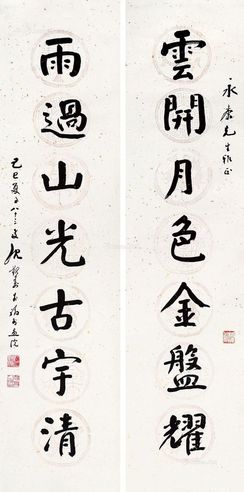 永康先生雅正
雲開月色金盤耀
雨過山光古宇清
己巳夏日八十三叟